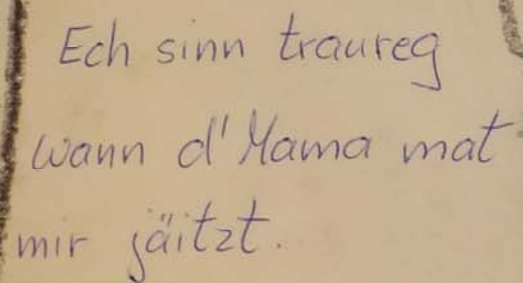 Ech sinn traureg
wann d'Mama mat
mir jäitzt.